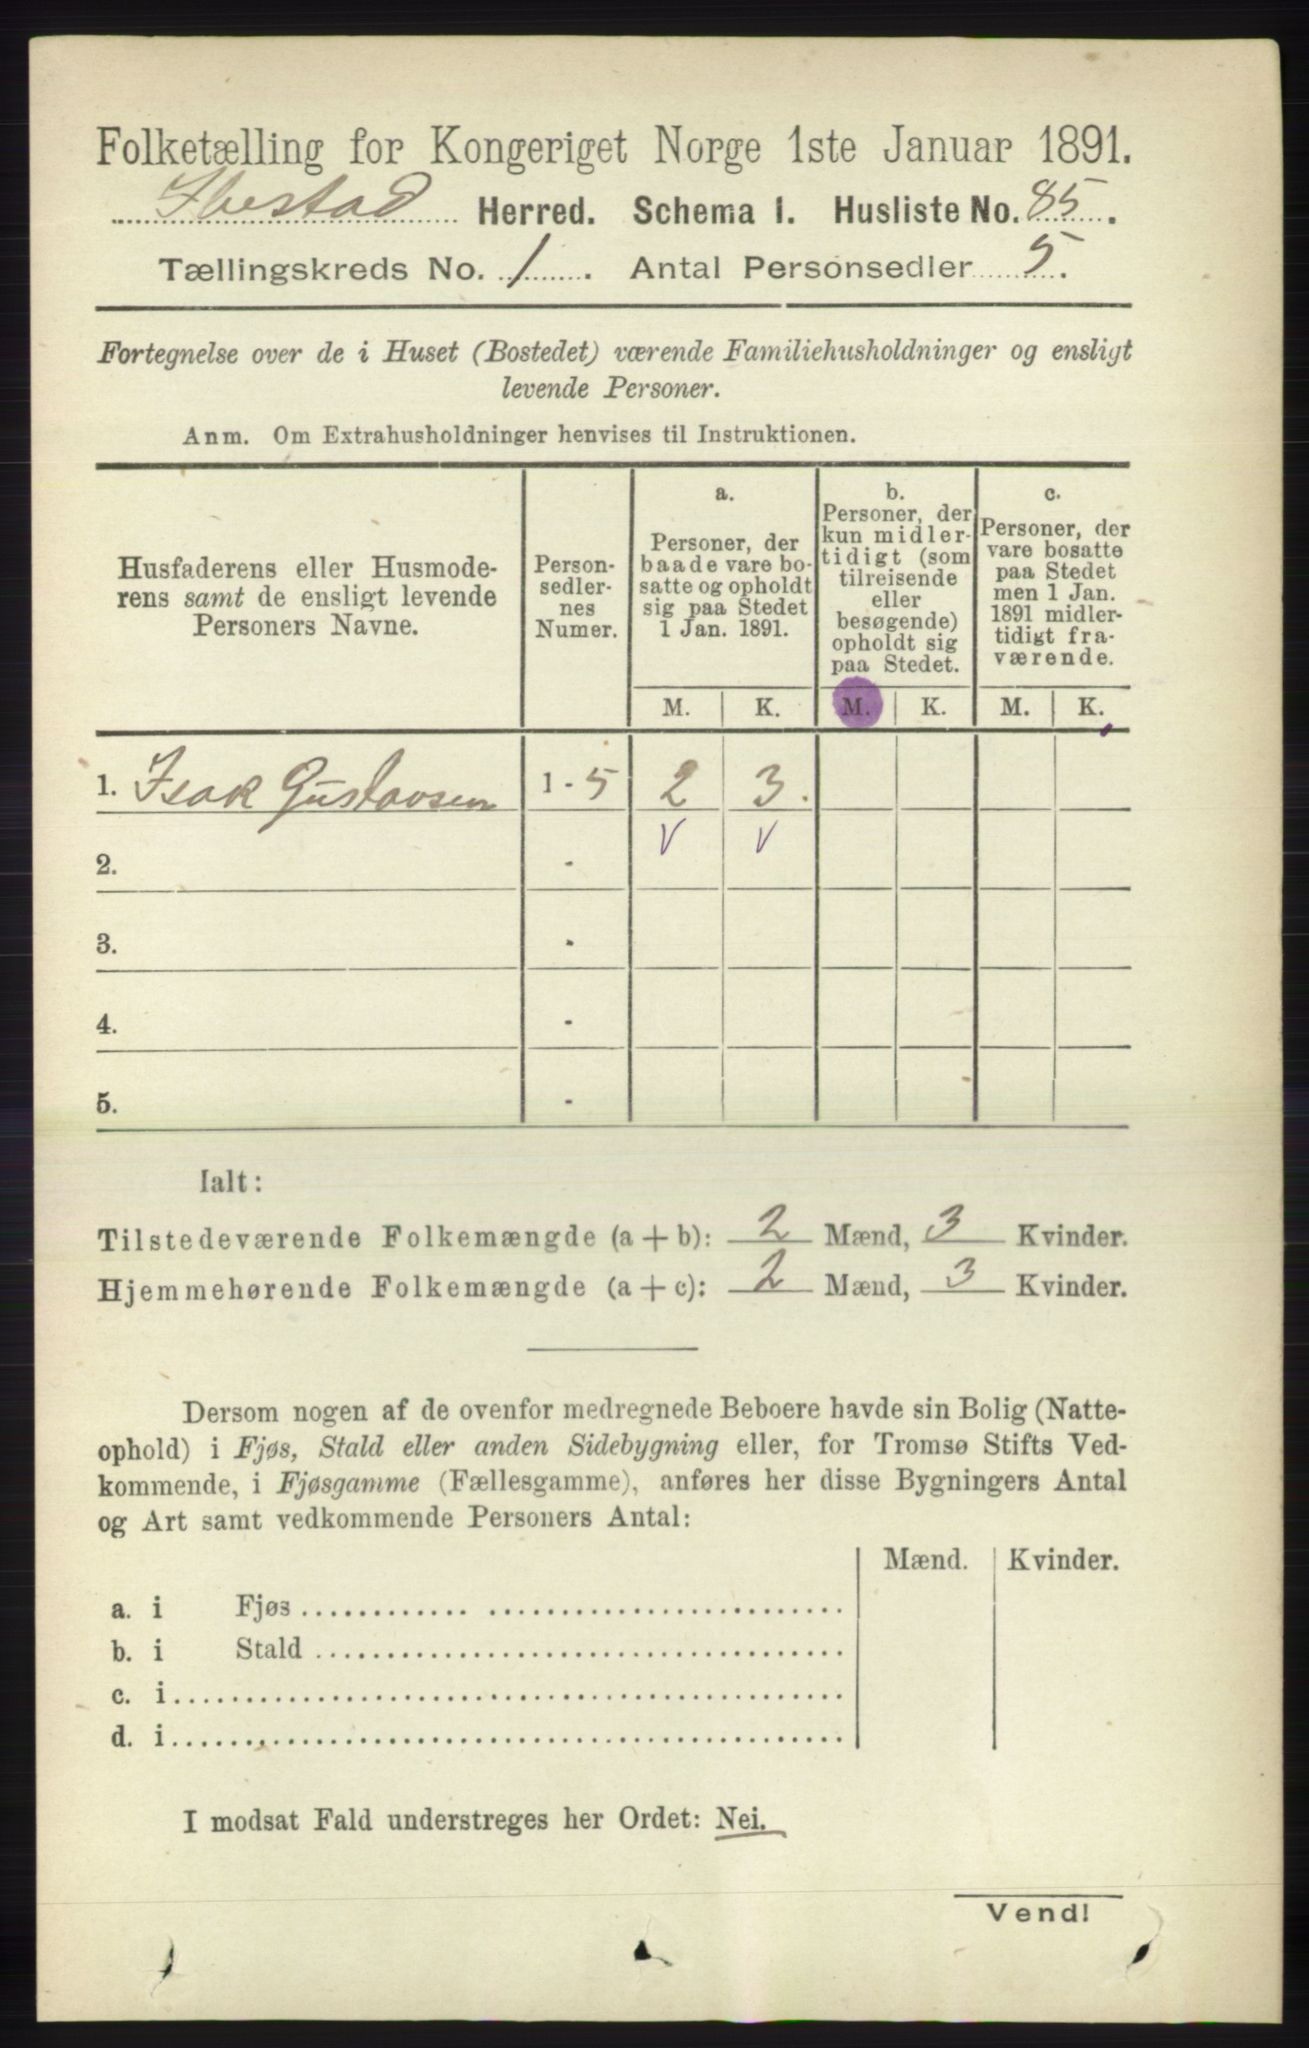 Folketælling for Kongeriget Norge 1ste Januar 1891.
Ibestad Herred. Schema I. Husliste No. 85.
Tællingskreds No. 1. Antal Personsedler 5.
Fortegnelse over de i Huset (Bostedet) værende Familiehusholdninger og ensligt
levende Personer.
Anm. Om Extrahusholdninger henvises til Instruktionen.
Husfaderens eller Husmode-
rens samt de ensligt levende
Personers Navne.
Person-
sedler-
nes
Numer.
a.
Personer, der
baade vare bo-
satte og opholdt
sig paa Stedet
1 Jan. 1891.
b.
Personer, der
kun midler-
tidigt (som
tilreisende
eller
besøgende)
opholdt sig
paa Stedet.
c.
Personer, der
vare bosatte
paa Stedet
men 1 Jan.
1891 midler-
tidigt fra-
værende.
M. K. M. K. M. K.
1. Isak Gustavsen 1 - 5 2 3
2. - V V
3. -
4. -
5. -
Ialt:
Tilstedeværende Folkemængde (a + b): 2 Mænd, 3 Kvinder.
Hjemmehørende Folkemængde (a + c): 2 Mænd, 3 Kvinder.
Dersom nogen af de ovenfor medregnede Beboere havde sin Bolig (Natte-
ophold) i Fjøs, Stald eller anden Sidebygning eller, for Tromsø Stifts Ved-
kommende, i Fjøsgamme (Fællesgamme), anføres her disse Bygningers Antal
og Art samt vedkommende Personers Antal:
Mænd. Kvinder.
a. i Fjøs
b. i Stald
c. i
d. i
I modsat Fald understreges her Ordet: Nei.
Vend!